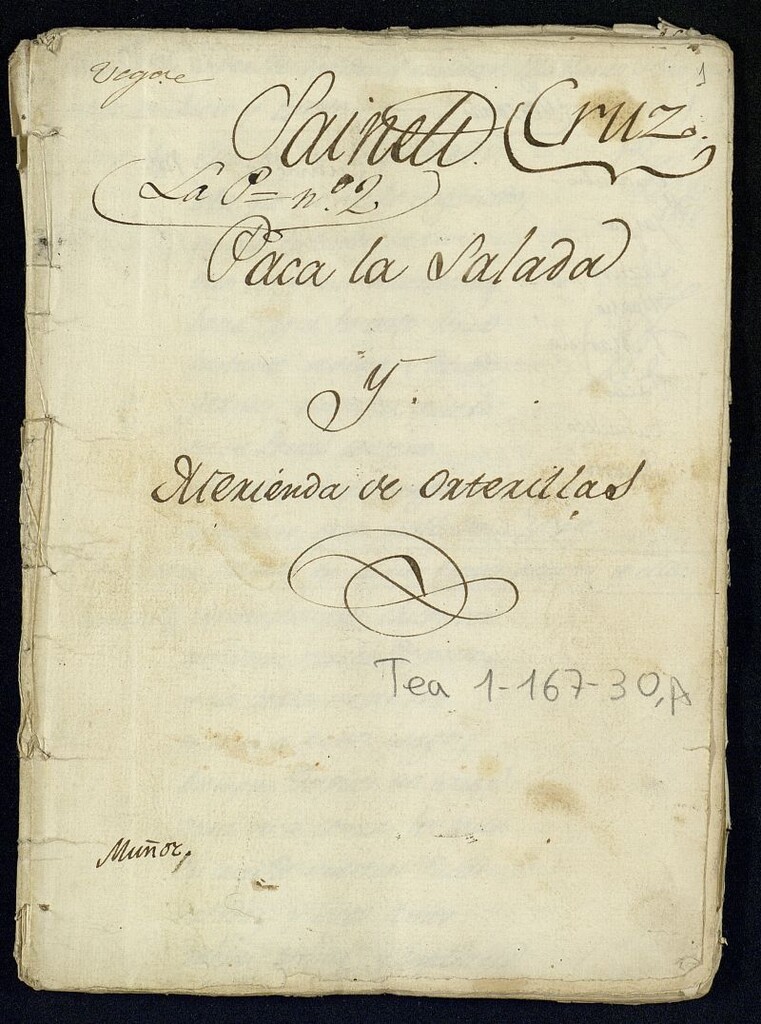 1
Sainete. Cruz.
La P= nº 2
Paca la Salada
Y.
Merienda de Orterillas
Tea 1-167-30, A
Muñoz.